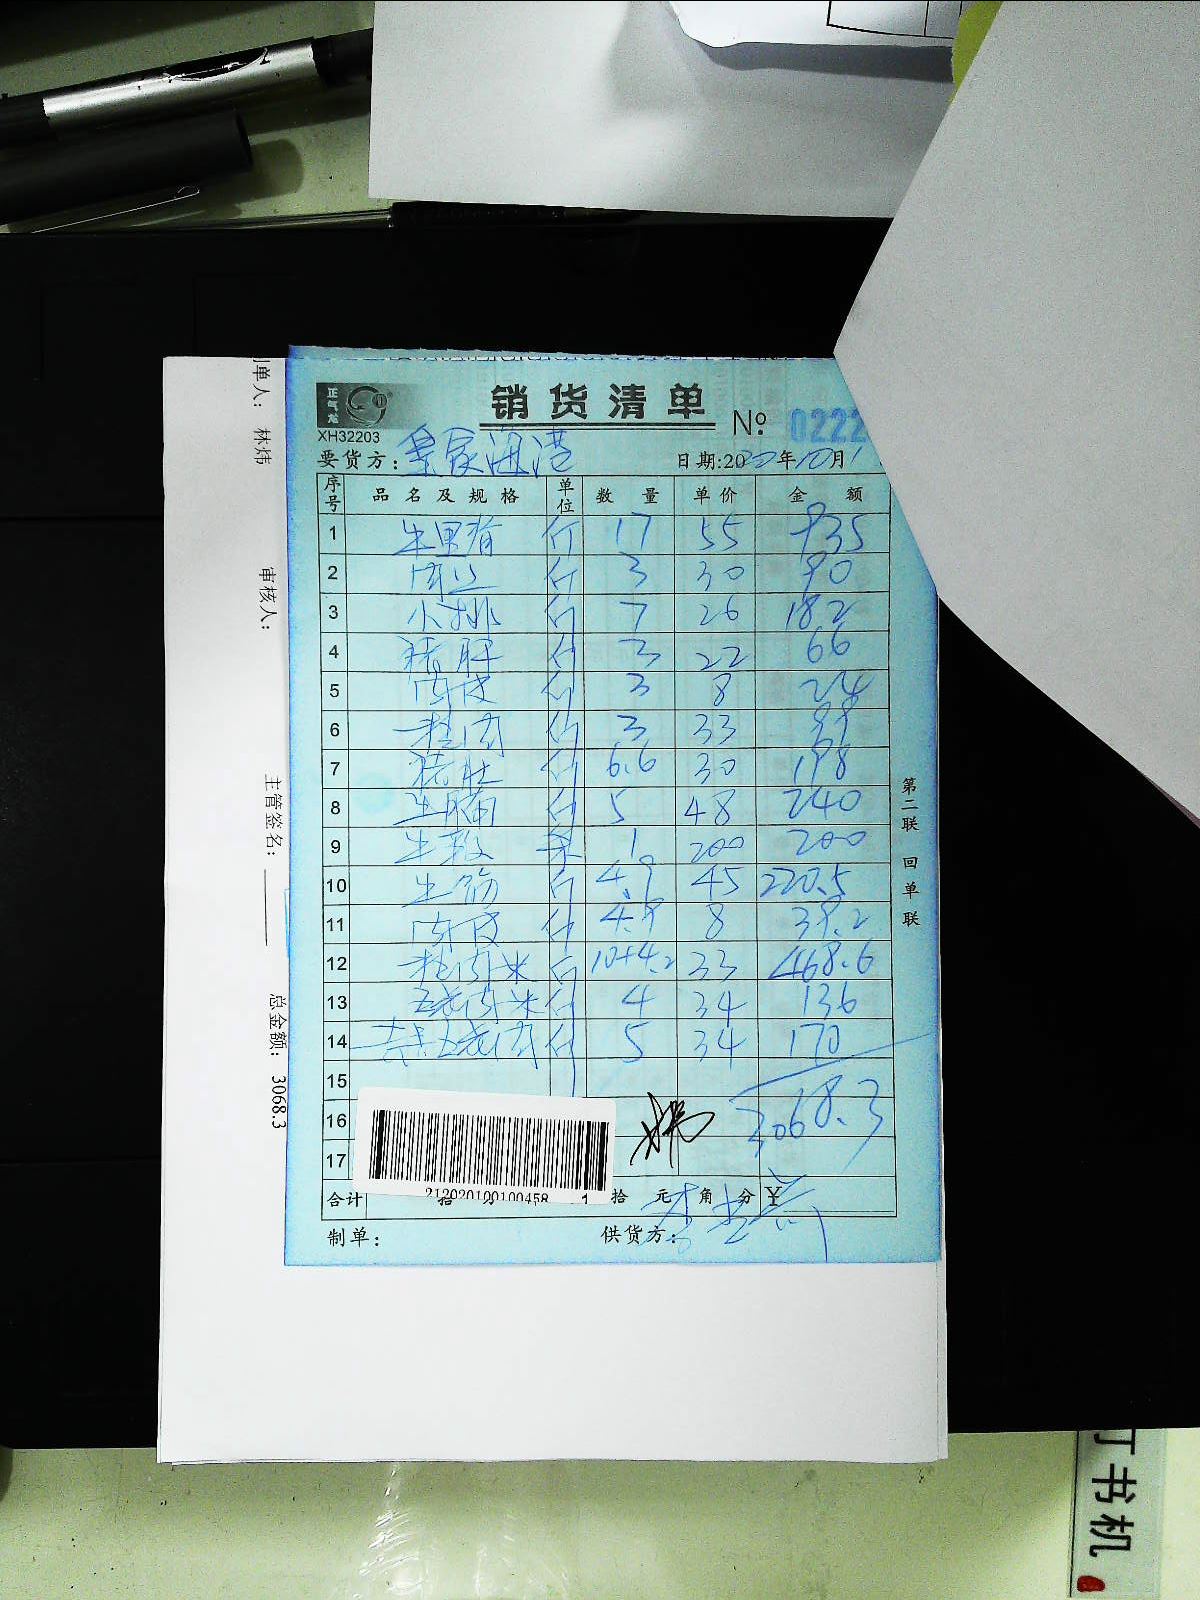 正气龙
XH32203
销货清单
№ 0222
要货方：皇家海港
日期:2020年10月1
序号 品名及规格 单位 数量 单价 金额
1 牛里脊 斤 17 55 935
2 斤 3 30 90
3 小排 斤 7 26 182
4 猪肝 斤 3 22 66
5 肉皮 斤 3 8 24
6 斤 3 33 99
7 猪肚 斤 6.6 30 198
8 牛腩 斤 5 48 240
9 1 200 200
10 斤 4.9 45 220.5
11 肉皮 斤 4.9 8 39.2
12 斤 10+4.2 33 468.6
13 五花肉米 斤 4 34 136
14 五花肉 斤 5 34 170
15
16 3068.3
17
合计 拾 元 角 分 ¥
212020100100458
制单：
供货方：
第二联 回单联
制单人： 林炜
审核人：
主管签名：
总金额： 3068.3
订书机